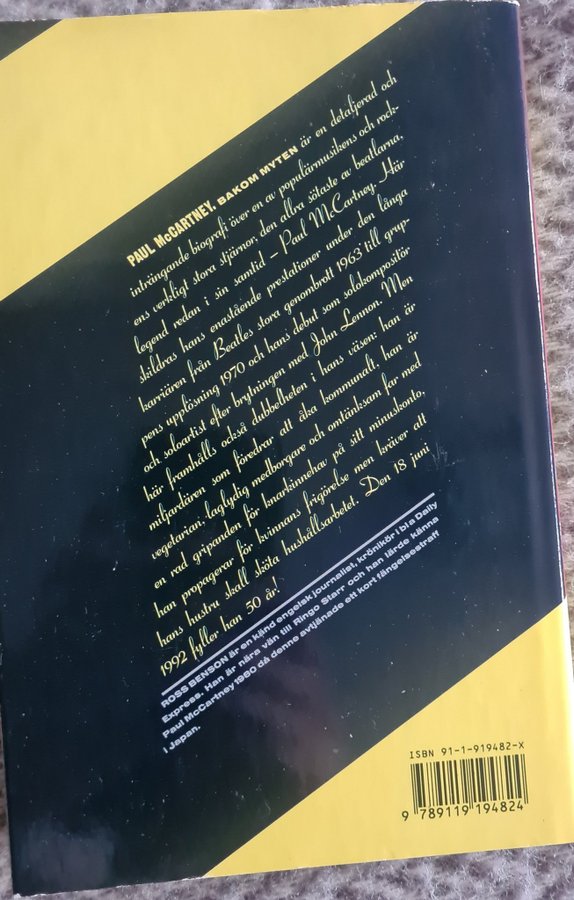 PAUL McCARTNEY. BAKOM MYTEN är en detaljerad och
inträngande biografi över en av populärmusikens och rock-
ens verkligt stora stjärnor, den allra sötaste av beatlarna,
legend redan i sin samtid – Paul McCartney. Här
skildras hans enastående prestationer under den långa
karriären från Beatles stora genombrott 1963 till grup-
pens upplösning 1970 och hans debut som solokompositör
och soloartist efter brytningen med John Lennon. Men
här framhålls också dubbelheten i hans väsen: han är
miljardären som föredrar att åka kommunalt, han är
vegetarian, laglydig medborgare och omtänksam far med
en rad gripanden för knarkinnehav på sitt minuskonto,
han propagerar för kvinnans frigörelse men kräver att
hans hustru skall sköta hushållsarbetet. Den 18 juni
1992 fyller han 50 år!
ROSS BENSON är en känd engelsk journalist, krönikör i bl a Daily
Express. Han är nära vän till Ringo Starr och han lärde känna
Paul McCartney 1980 då denne avtjänade ett kort fängelsestraff
i Japan.
ISBN 91-1-919482-X
9 789119 194824